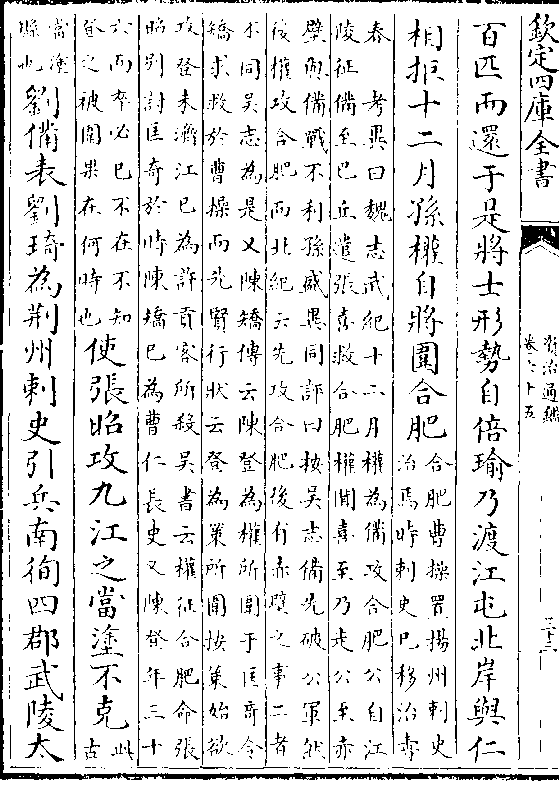 欽定四庫全書
資治通鑑
卷六十五
三十三
百匹而還于是將士形勢自倍瑜乃渡江屯北岸與仁
相拒十二月孫權自將圍合肥合肥曹操置揚州刺史
治焉時刺史已移治壽
春 考異曰魏志武紀十二月權為備攻合肥公自江
陵征備至巴丘遣張喜救合肥權聞喜至乃走公至赤
壁與備戰不利孫盛異同評曰按吳志備先破公軍然
後權攻合肥而此紀云先攻合肥後有赤壁之事二者
不同吳志為是又陳矯傳云陳登為權所圍于匡奇令
矯求救於曹操而先賢行狀云登為策所圍按策始欲
攻登未濟江已為許貢客所殺吳書云權征合肥命張
昭別討匡奇於時陳矯已為曹仁長史又陳登年三十
六而卒必已不在不知
登之被圍果在何時也使張昭攻九江之當塗不克此
古
當塗
縣也劉備表劉琦為荆州刺史引兵南徇四郡武陵太